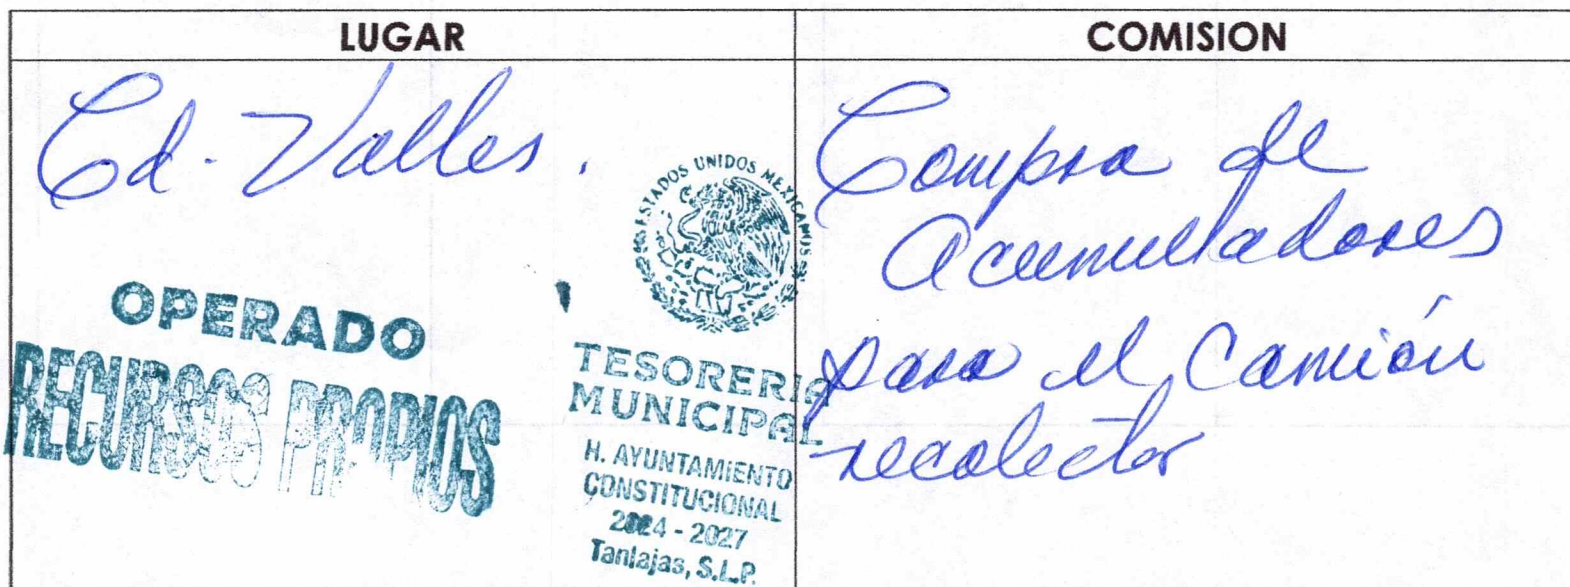 LUGAR
COMISION
Cd. Valles.
Compra de
Acumuladores
para el Camión
recolector
OPERADO
RECURSOS PROPIOS
ESTADOS UNIDOS MEXICANOS
TESORERIA
MUNICIPAL
H. AYUNTAMIENTO
CONSTITUCIONAL
2024 - 2027
Tanlajas, S.L.P.